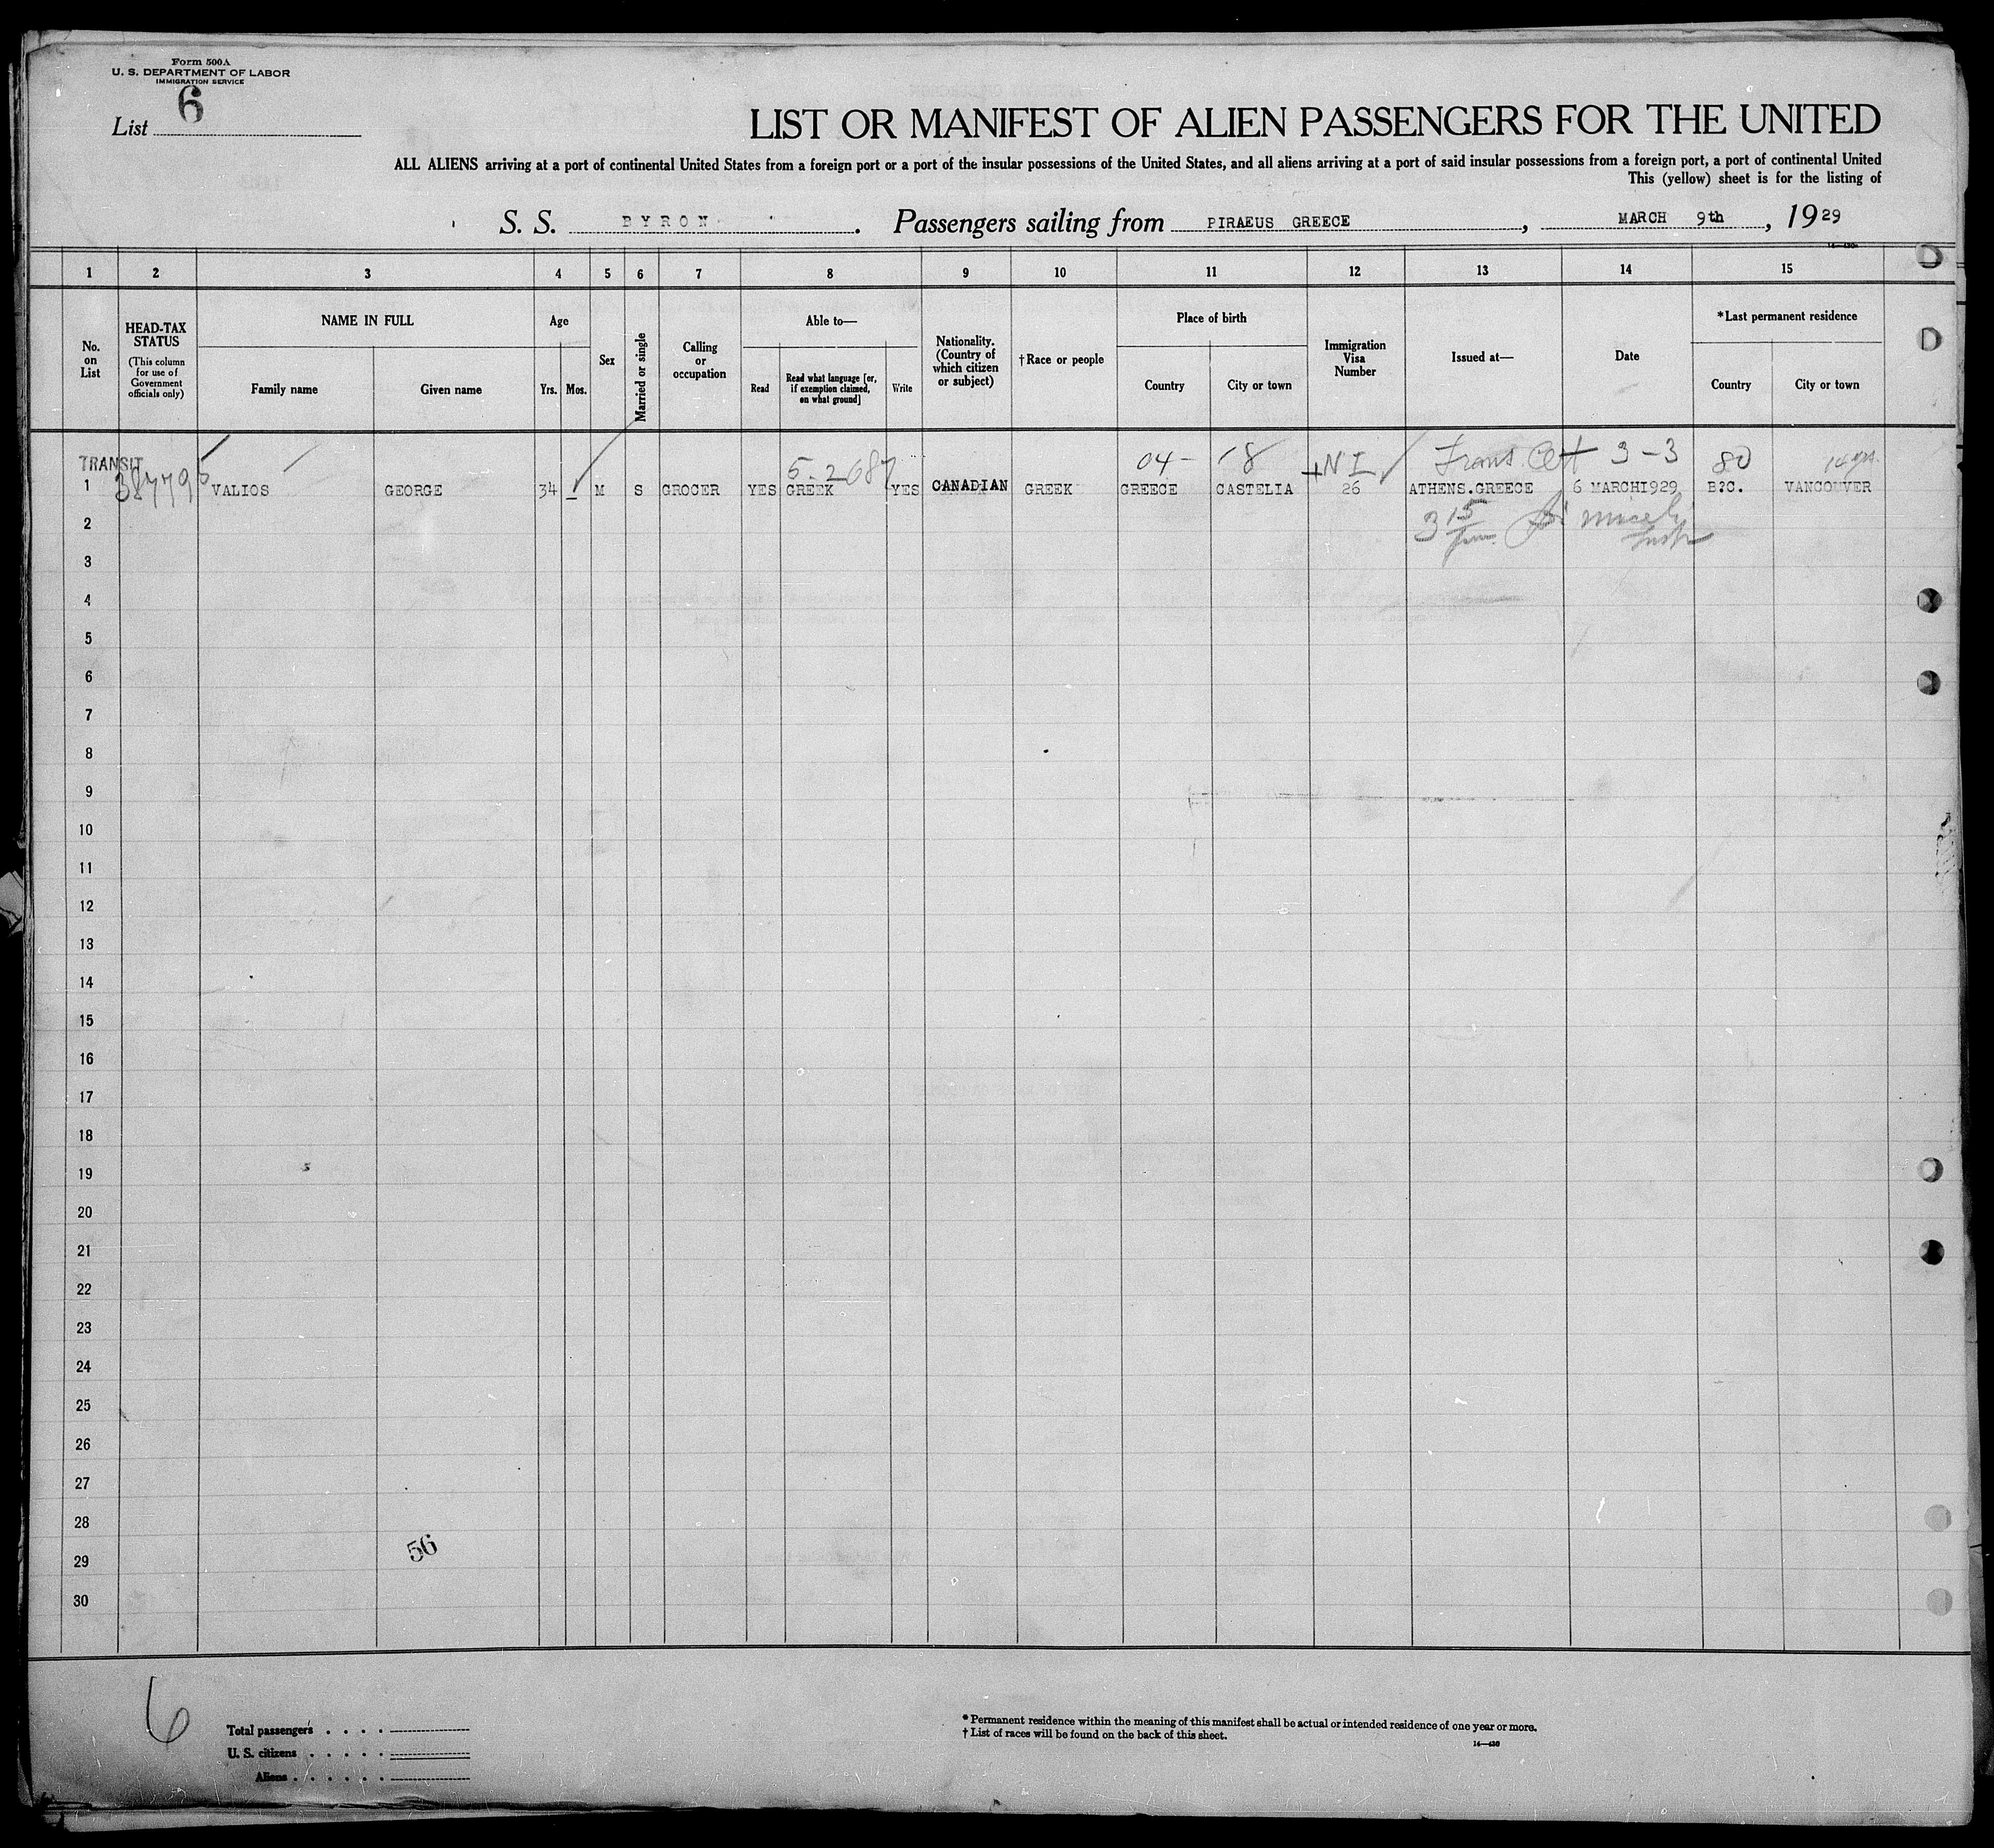 Form 500A
U. S. DEPARTMENT OF LABOR
IMMIGRATION SERVICE
List 6
LIST OR MANIFEST OF ALIEN PASSENGERS FOR THE UNITED
ALL ALIENS arriving at a port of continental United States from a foreign port or a port of the insular possessions of the United States, and all aliens arriving at a port of said insular possessions from a foreign port, a port of continental United
This (yellow) sheet is for the listing of
S. S. BYRON. Passengers sailing from PIRAEUS GREECE, MARCH 9th, 1929
1 2 3 4 5 6 7 8 9 10 11 12 13 14 15
No. on List
HEAD-TAX STATUS
(This column for use of Government officials only)
NAME IN FULL
Family name
Given name
Age
Yrs.
Mos.
Sex
Married or single
Calling or occupation
Able to—
Read
Read what language [or, if exemption claimed, on what ground]
Write
Nationality. (Country of which citizen or subject)
†Race or people
Place of birth
Country
City or town
Immigration Visa Number
Issued at—
Date
*Last permanent residence
Country
City or town
TRANSIT 5-2687 04- 18 NI Trans Cert 3-3 80 14 yrs.
1 387795 VALIOS GEORGE 34 M S GROCER YES GREEK YES CANADIAN GREEK GREECE CASTELIA 26 ATHENS.GREECE 6 MARCH1929 B?C. VANCOUVER
2 3 15 pm Insp
3
4
5
6
7
8
9
10
11
12
13
14
15
16
17
18
19
20
21
22
23
24
25
26
27
28
56
29
30
6
Total passengers
U. S. citizens
Aliens
* Permanent residence within the meaning of this manifest shall be actual or intended residence of one year or more.
† List of races will be found on the back of this sheet.
14—430